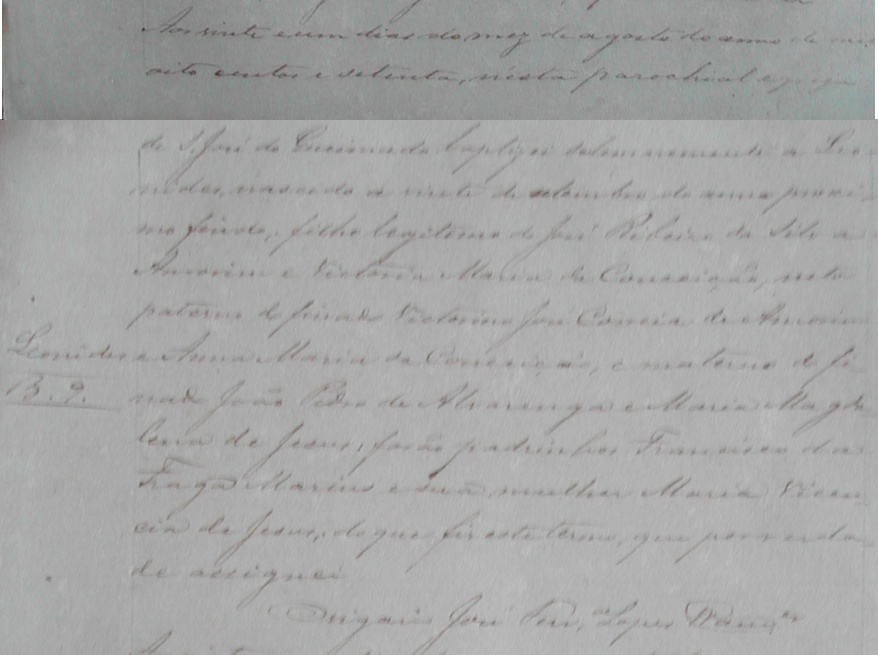 Aos vinte e um dias do mez de agosto do anno de mil
oito centos e setenta, n'esta parochial egreja
de S. José do baptizei solemnemente a Leo-
nides, nascido a vinte de setembro do anno proxi-
mo findo, filho legitimo de José Ribeiro da Silva
Amorim e Victoria Maria da Conceição, neto
paterno do finado Victorino José Correia de Amorim
Leonides
e Anna Maria da Conceição, e materno do fi-
B. 9.
nado João Pedro de Alvarenga e Maria Magda-
lena de Jesus; forão padrinhos Francisco da
Fraga Marins e sua mulher Maria Vicen-
cia de Jesus; do que fiz este termo, que por verda-
de assignei
José Lopes